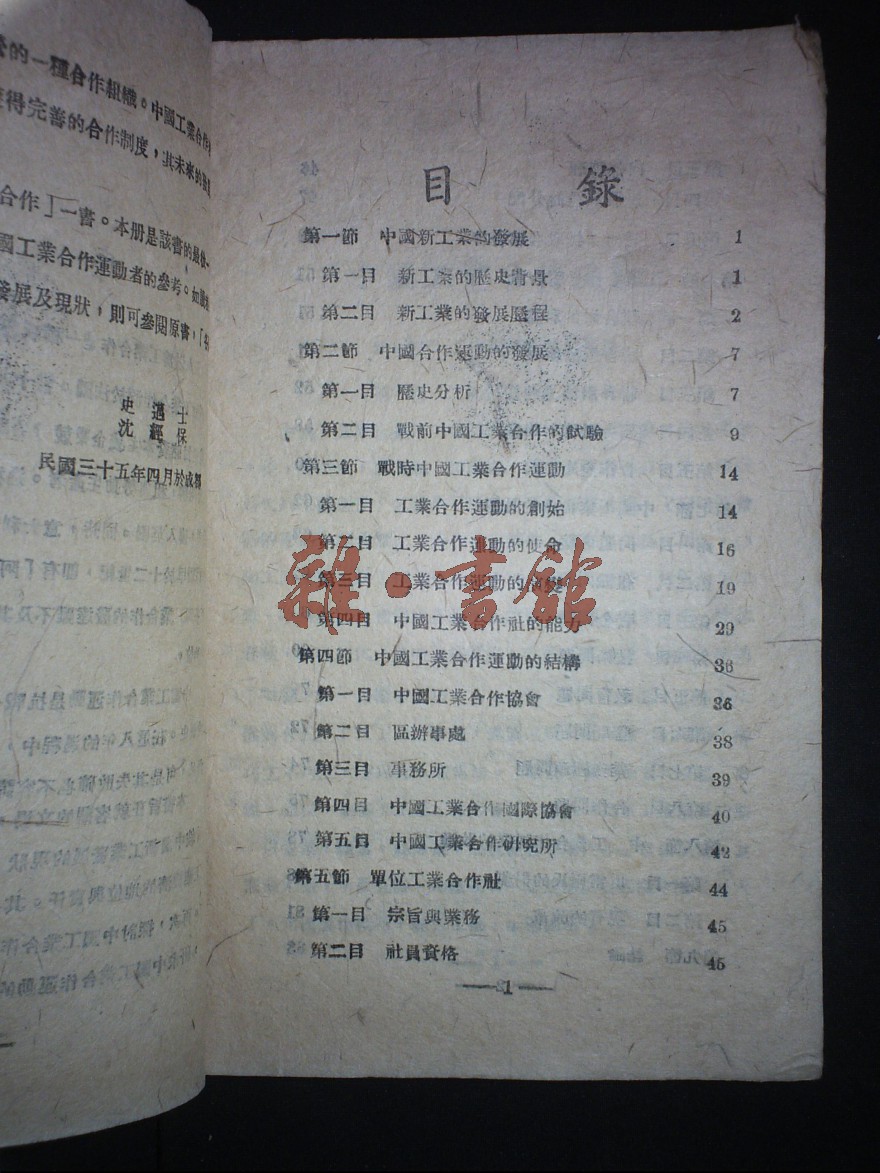 的一種合作組織。中國工業合作
得完善的合作制度，其未來的發展
合作」一書。本册是該書的最後一
國工業合作運動者的參考。如
發展及現狀，則可參閱原書，「
史邁士
沈經保
民國三十五年四月於成都
目錄
第一節 中國新工業的發展 1
第一目 新工業的歷史背景 1
第二目 新工業的發展歷程 2
第二節 中國合作運動的發展 7
第一目 歷史分析 7
第二目 戰前中國工業合作的試驗 9
第三節 戰時中國工業合作運動 14
第一目 工業合作運動的創始 14
第二目 工業合作運動的使命 16
第三目 工業合作運動的演變 19
第四目 中國工業合作社的能力 29
第四節 中國工業合作運動的結構 36
第一目 中國工業合作協會 36
第二目 區辦事處 38
第三目 事務所 39
第四目 中國工業合作國際協會 40
第五目 中國工業合作研究所 42
第五節 單位工業合作社 44
第一目 宗旨與業務 45
第二目 社員資格 45
—1—
雜·書館